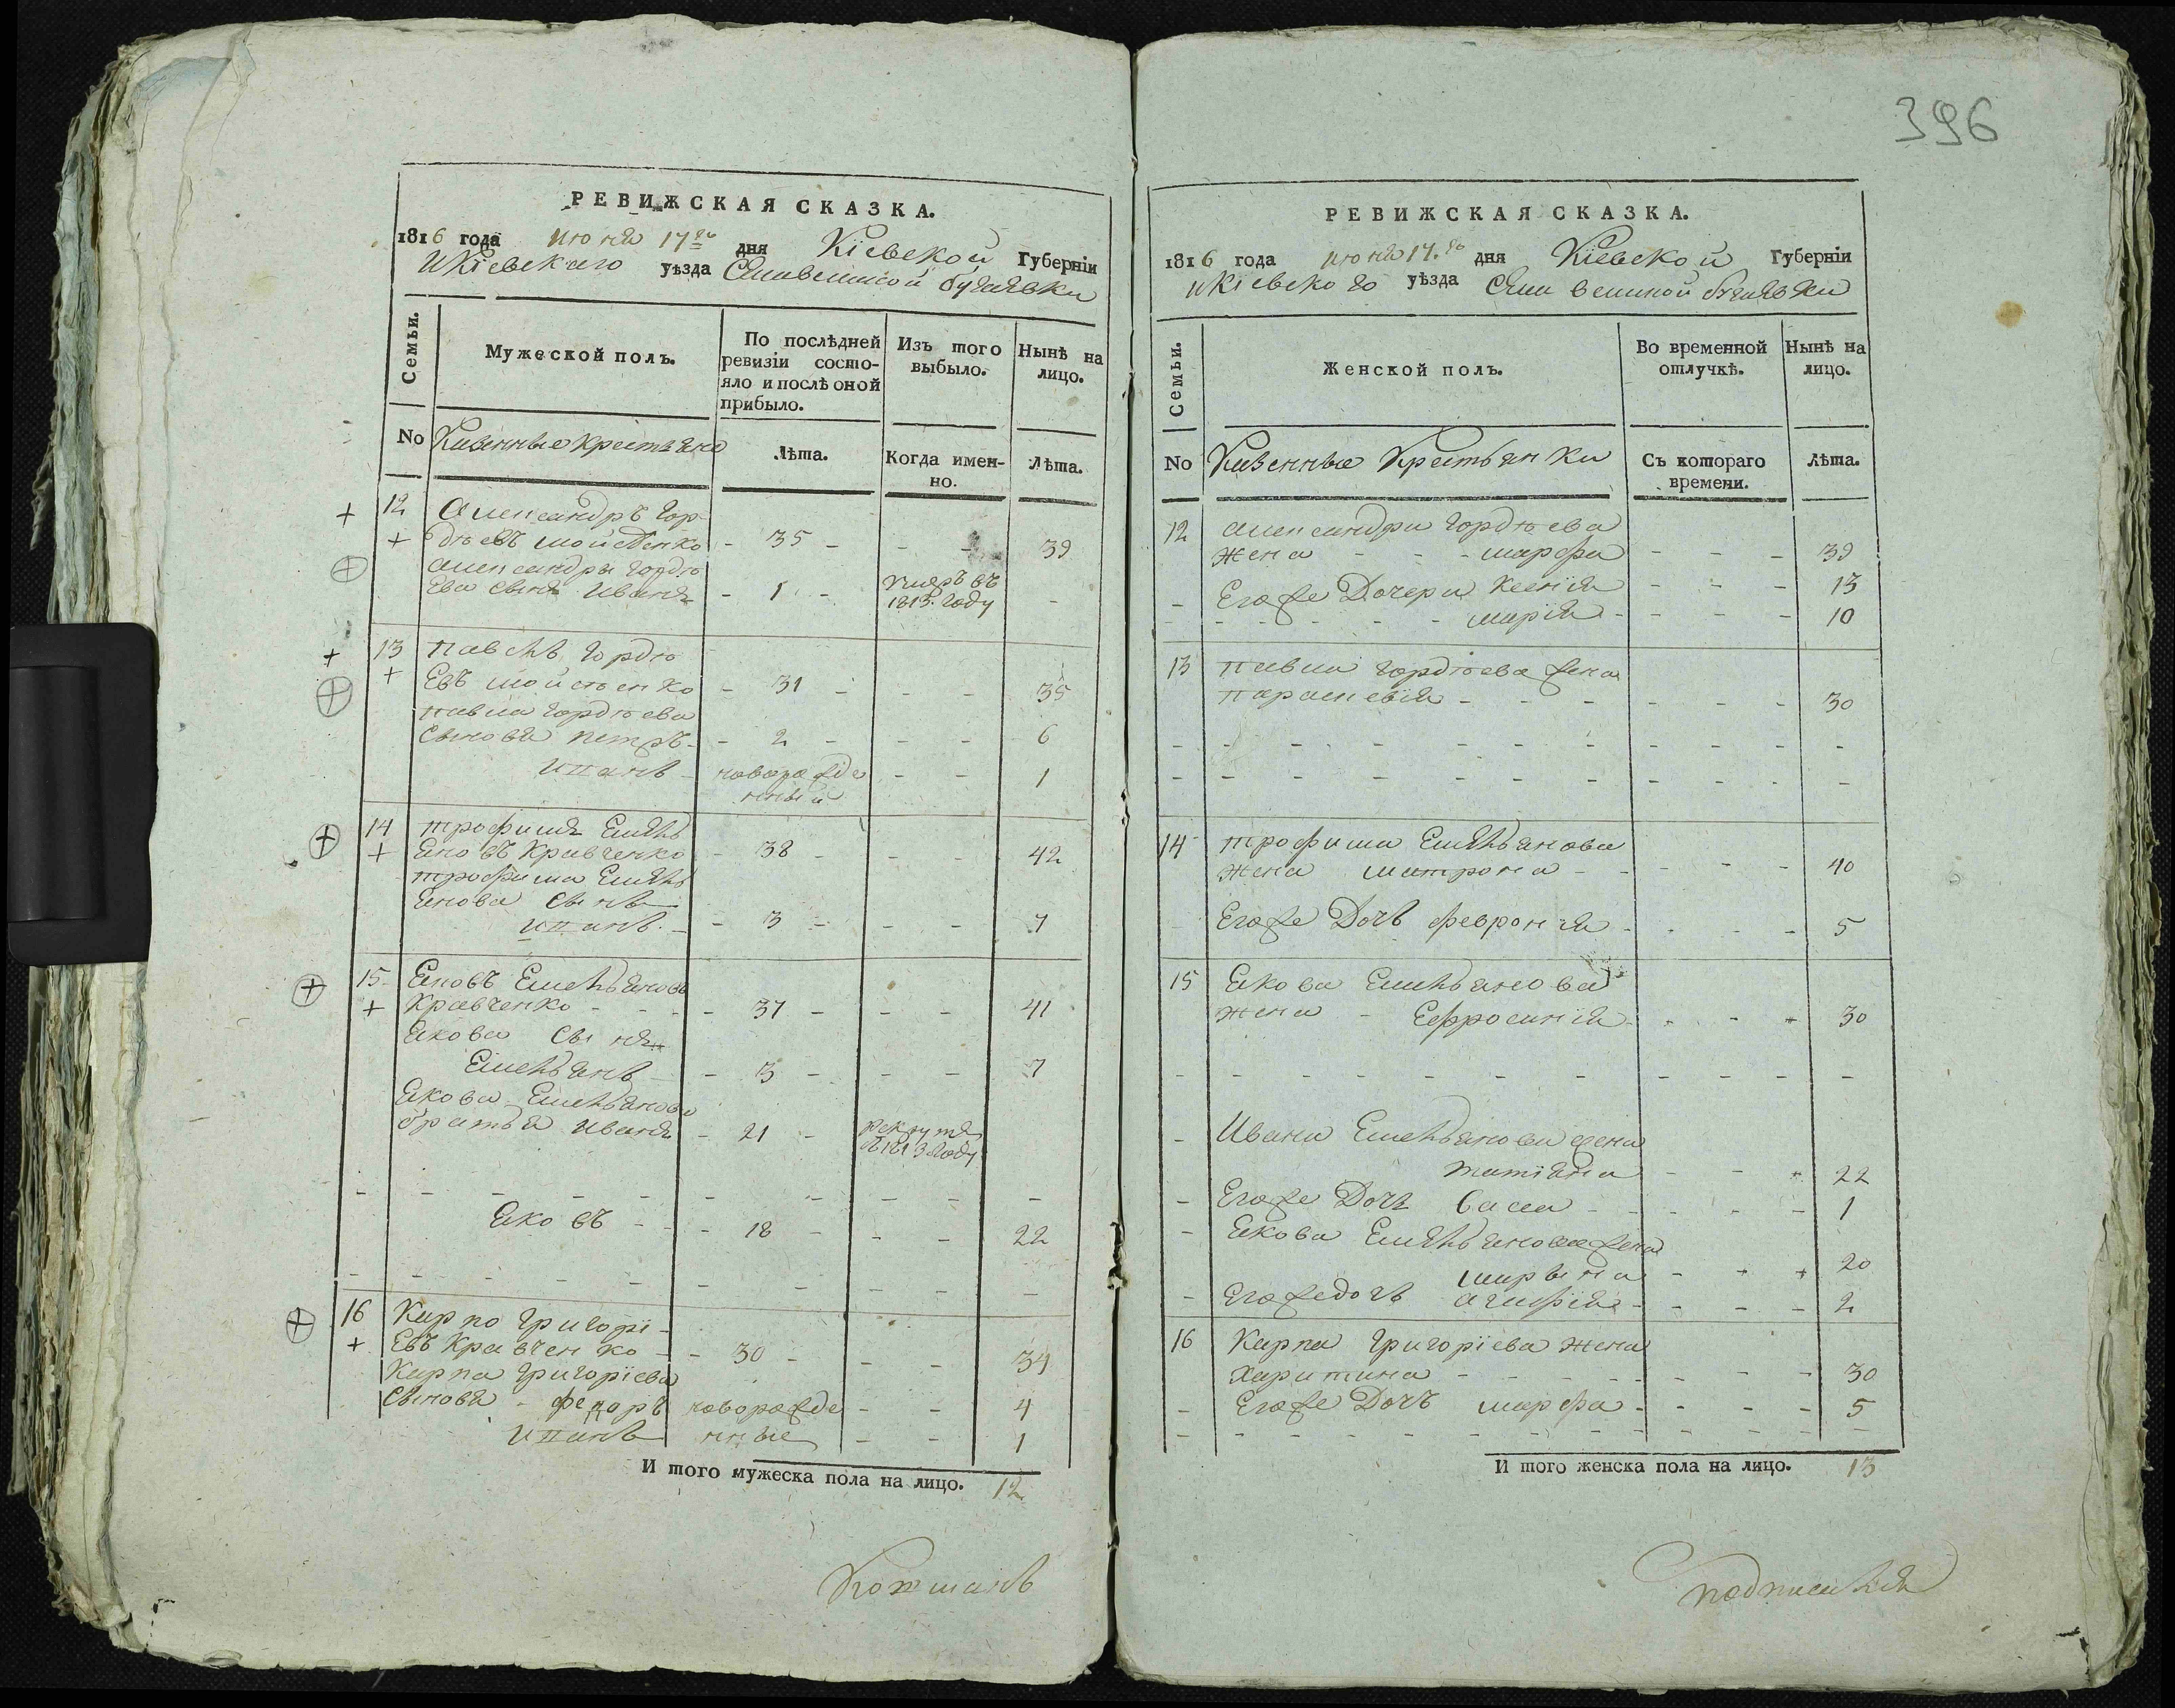 396
РЕВИЖСКАЯ СКАЗКА.
1816 года июня 17го дня Кіевской Губерніи
и Кіевскаго уѣзда Села великой бугаевки
Семьи.
Мужеской полъ.
По послѣдней ревизіи состояло и послѣ оной прибыло.
Изъ того выбыло.
Нынѣ на лицо.
No Казенные крестьяне Лѣта. Когда именно. Лѣта.
12 Александръ Гор-
дѣевъ мойсѣенко - 35 - - - 39
Александры гордѣ
ева сынъ Иванъ - 1 - умеръ въ 1813. году -
13 Павелъ гордѣ
Евъ мойсѣенко - 31 - - - 35
павла гордѣева
сыновья петръ - - 2 - - - 6
иванъ - новорожде - - 1
нный
14 трофимъ Емель
яновъ Кравченко - 38 - - - 42
трофима Емель
янова сынъ
иванъ - - 3 - - - 7
15 Яковъ Емельяновъ
Кравченко - - - - 37 - - - 41
Якова сынъ
Емельянъ - - 3 - - - 7
Якова Емельянова
братья иванъ - 21 - рекрутъ
в 1813 году
Яковъ - - - 18 - - - 22
16 Карпо григорі-
Евъ Кравченко - - 30 - - - 34
Карпа григоріева
сыновья - федоръ новорожде - - 4
иванъ нные - - 1
И того мужеска пола на лицо. 12
Кожманъ
РЕВИЖСКАЯ СКАЗКА.
1816 года июня 17.го дня Кіевской Губерніи
и Кіевского уѣзда села великой бугаевки
Семьи.
Женской полъ.
Во временной отлучкѣ.
Нынѣ на лицо.
No Казенные Крестьянки Съ котораго времени. Лѣта.
12 Александры гордѣева
жена - - - марфа - - - 39
- Егоже Дочери Ксенія - - - 13
марія - - - - 10
13 павла гордѣева жена
параскевія - - - - - - 30
14 трофима Емельянова
жена матрона - - - - 40
Егоже Дочь февронія - - - - 5
15 Якова Емельянова
жена - Ефросинія - - - - 30
- Ивана Емельянова жена
татіяна - - - 22
- Егоже Дочь васса - - - - - 1
- Якова Емельянова жена
марьяна - - - 20
- Егоже дочь агафія - - - - 2
16 Карпа григоріева жена
харитина - - - - - - - - 30
- Егоже Дочь марфа - - - - 5
И того женска пола на лицо. 13
подписался